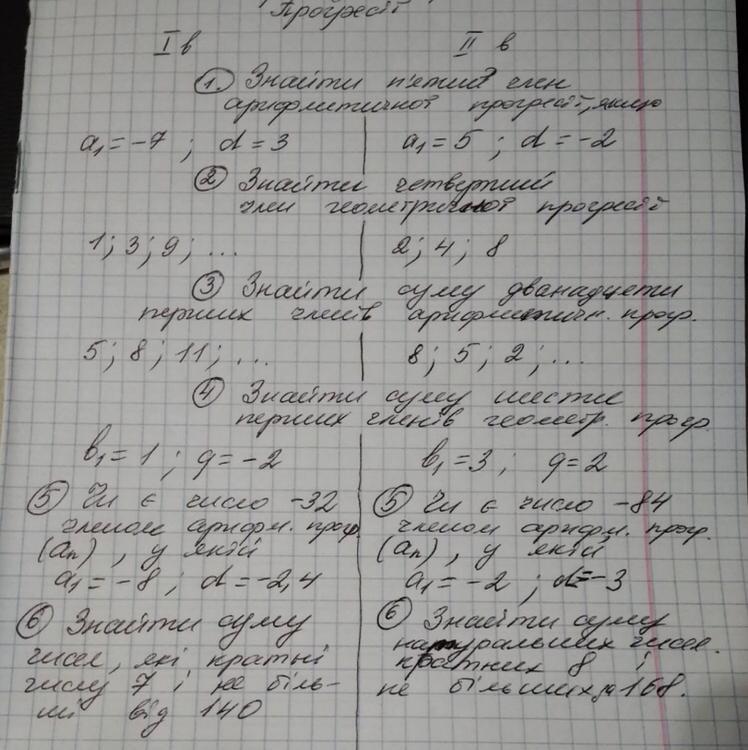 Прогресії
I в II в
① Знайти п'ятий член
арифметичної прогресії, якщо
a₁ = -7 ; d = 3 a₁ = 5 ; d = -2
② Знайти четвертий
член геометричної прогресії
1; 3; 9; ... 2; 4; 8
③ Знайти суму дванадцяти
перших членів арифметичн. прогр.
5; 8; 11; ... 8; 5; 2; ...
④ Знайти суму шести
перших членів геометр. прогр.
b₁ = 1 ; q = -2 b₁ = 3 ; q = 2
⑤ Чи є число -32
членом арифм. прогр.
(aₙ), у якій
a₁ = -8 ; d = -2,4
⑥ Знайти суму
чисел, які кратні
числу 7 і не біль-
ші від 140
⑤ Чи є число -84
членом арифм. прогр.
(aₙ), у якій
a₁ = -2 ; d = -3
⑥ Знайти суму
натуральних чисел.
кратних 8 і
не більших за 168.